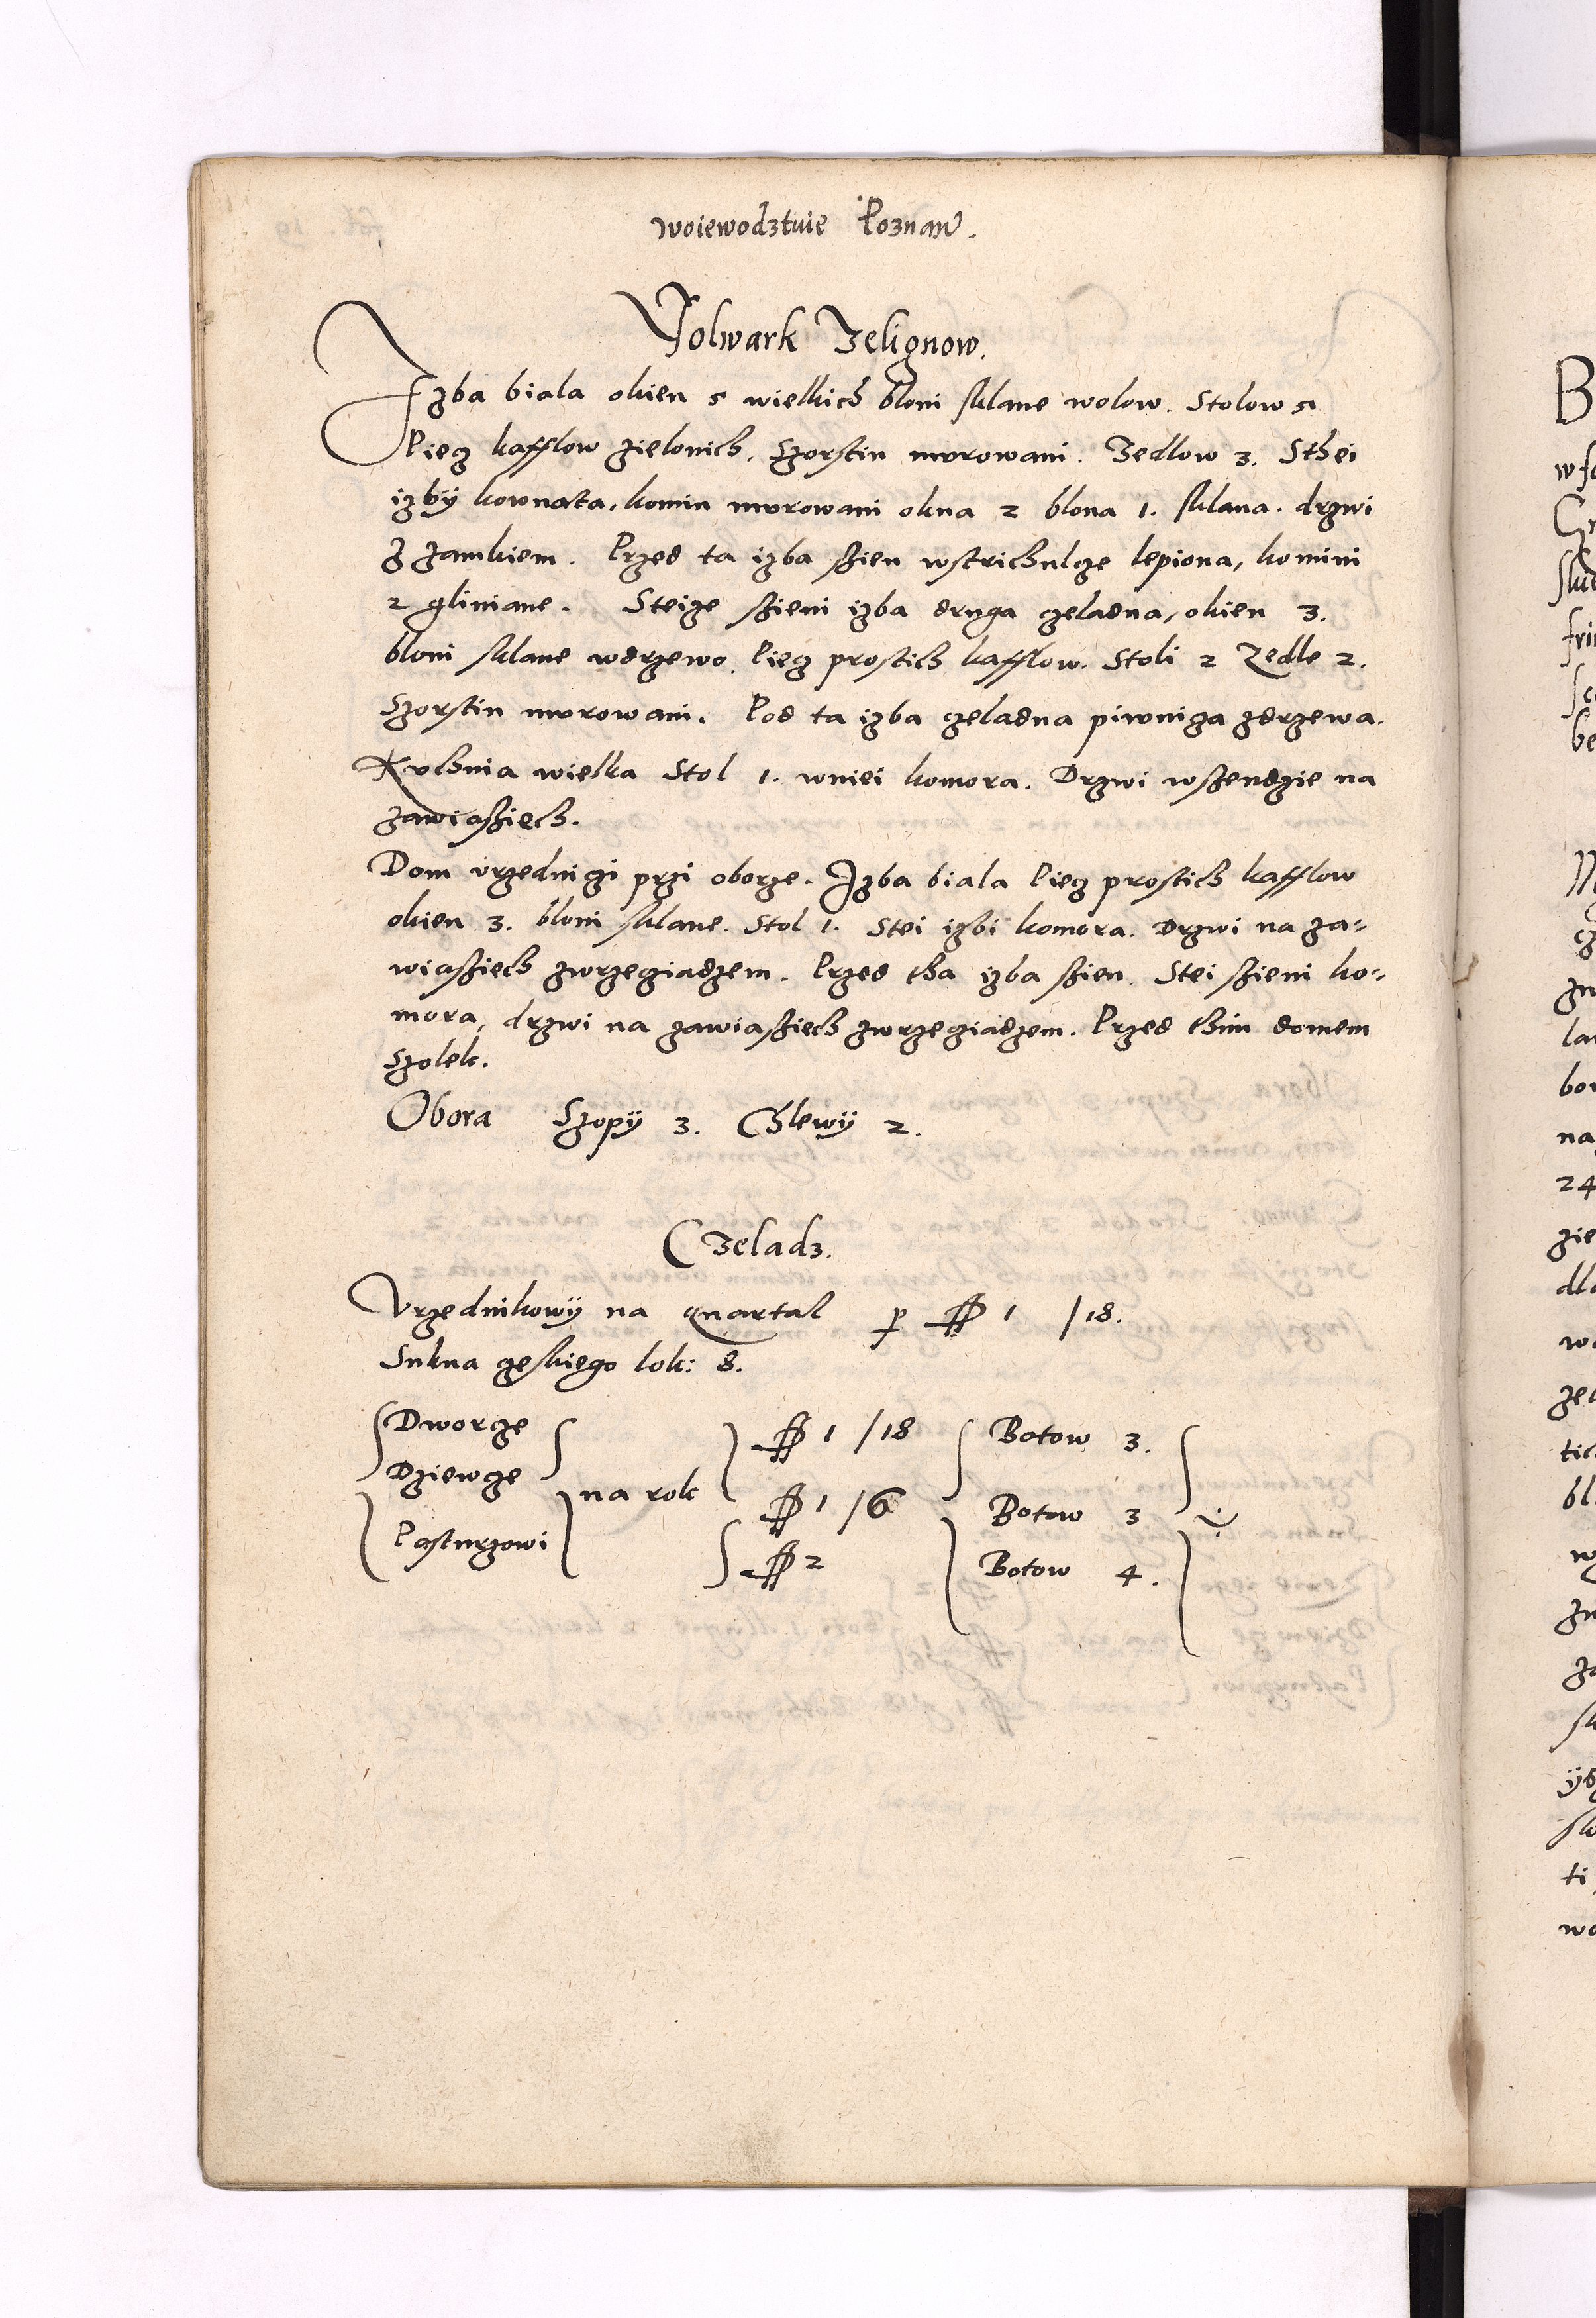 woiewodztwie Poznan̄.
Folwark Zelignow.
Izba biala okien 5 wielkich bloni sklane wolow. Stolow 5
Piecz kafflow zielonich. Szorstin mvrowani. Zedlow 3. Sthei
izbÿ kownata, komin mvrowani okna 2 blona 1. sklana. drzwi
z zamkiem. Przed ta izba szien wstrichulcze lepiona, komini
2 gliniane. Steize szieni izba druga czeladna, okien 3.
bloni sklane wdrzewo. Piecz prostich kafflow. Stoli 2 Zedle 2.
Szorstin mvrowani. Pod ta izba czeladna piwnicza zdrzewa.
Kvchnia wielka Stol 1. wniei komora. Drzwi wszendzie na
zawiasziech.
Dom vrzedniczi przi oborze. Izba biala Piecz prostich kafflow
okien 3. bloni sklane. Stol 1. Stei izbi komora. Drzwi na za=
wiasziech zwrzecziadzem. Przed tha izba szien. Stei szieni ko=
mora, drzwi na zawiasziech zwrzecziadzem. Przed thim domem
Szolek.
Obora Szopÿ 3. Chlewÿ 2.
Czeladz.
Vrzednikowÿ na quartal p ff 1 /18.
Sukna czeskiego lok: 8.
Dworcze ff 1 /18 Botow 3.
Dziewcze na rok ff 1 /6 Botow 3
Pasturzowi ff 2 Botow 4.